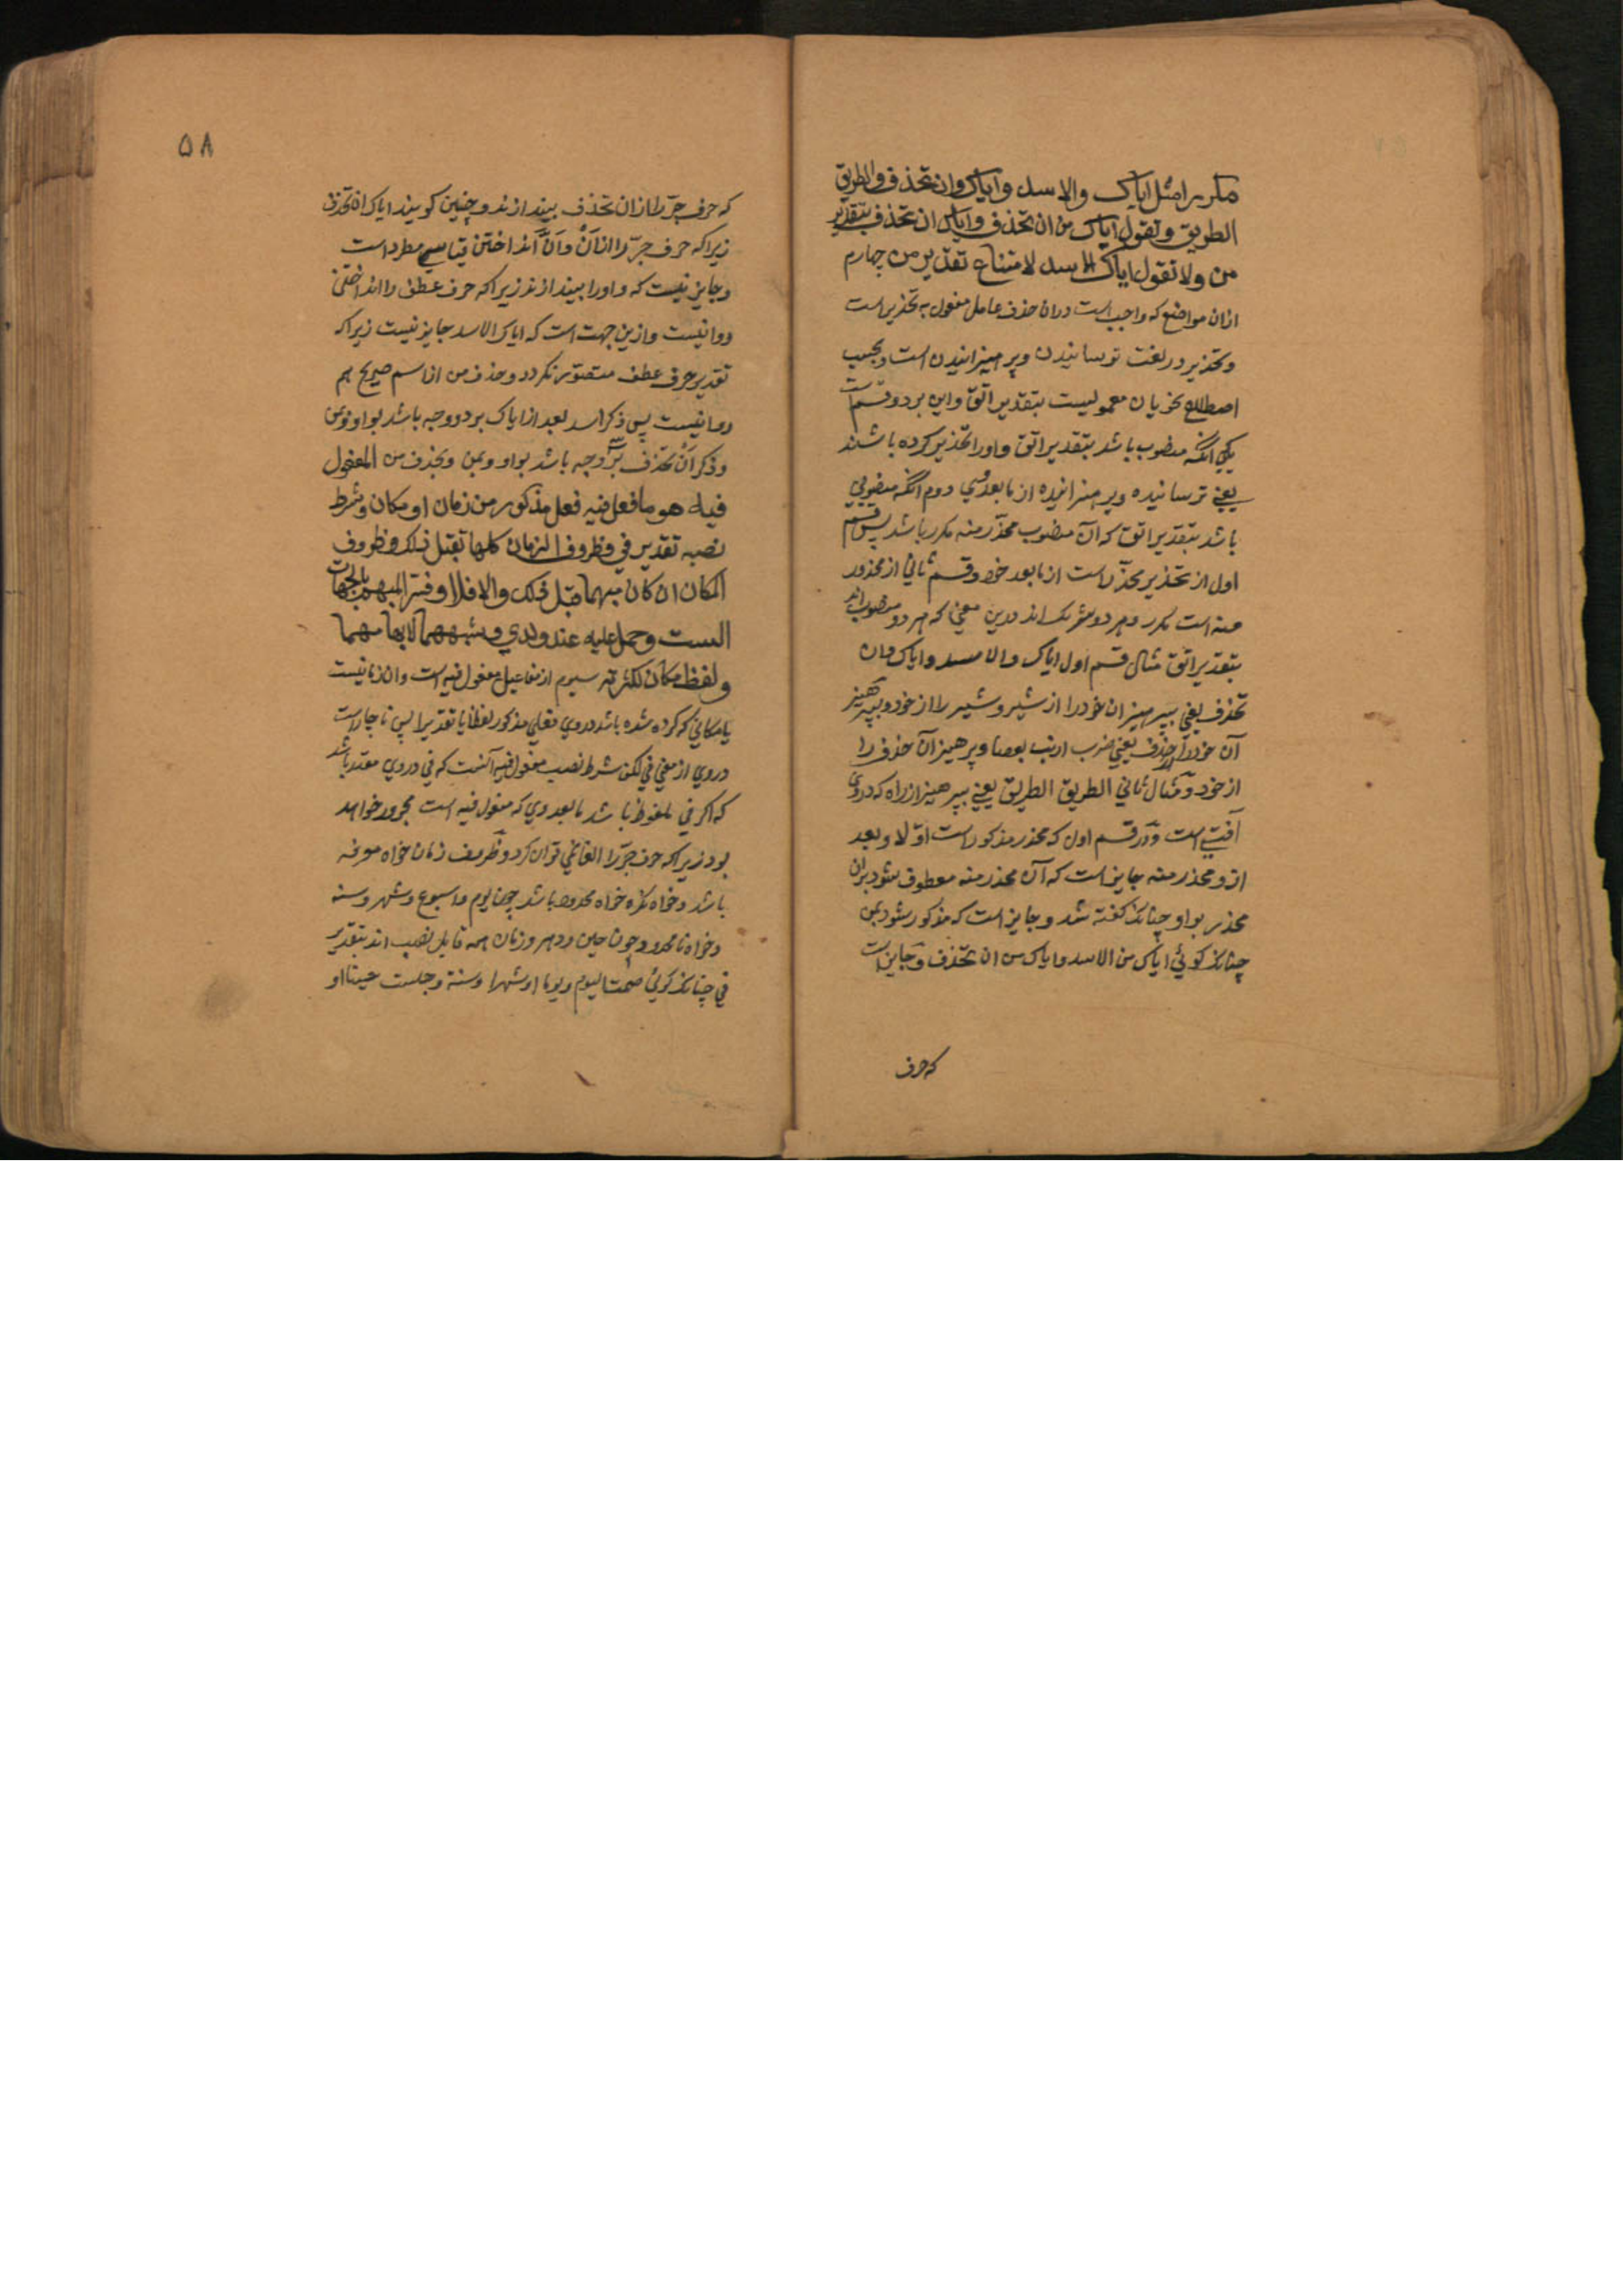 مکررا مثل ایاک والاسد وایاک وان تحذف والطریق
الطریق وتقول ایاک من ان تحذف وایاک ان تحذف بتقدیر
من ولا تقول ایاک الاسد لامتناع تقدیر من چهارم
ازان مواضع که واجب است دران حذف عامل مفعول به تحذیر است
وتحذیر در لغت ترسانیدن وپرهیزانیدن است وبحسب
اصطلاح نحویان معمولیست بتقدیر اتق واین بر دو قسم است
یکی آنکه منصوب باشد بتقدیر اتق واورا تحذیر کرده باشند
یعنی ترسانیده وپرهیزانیده از مابعد وی دوم آنکه منصوبی
باشد بتقدیر اتق که آن منصوب محذر منه مکرر باشد پس قسم
اول از تحذیر محذر است از مابعد خود وقسم ثانی از محذور
منه است مکرر وهر دو مشترک اند درین معنی که هر دو منصوب اند
بتقدیر اتق مثال قسم اول ایاک والاسد وایاک وان
تحذف یعنی بپرهیزان خودرا از شیر وشیر را از خود وبپرهیز
آن خودرا از حذف یعنی ضرب ارنب بعصا وپرهیزان حذف را
از خود ومثال ثانی الطریق الطریق یعنی بپرهیز از راه که دروی
آفتی است ودر قسم اول که محذر مذکور است اولا وبعد
ازو محذر منه جایز است که آن محذر منه معطوف شود بران
محذر بواو چنانکه گفته شد وجایز است که مذکور شود بمن
چنانکه کوئی ایاک من الاسد وایاک من ان تحذف وجایز است
که حرف
۵۸
که حرف جر را از ان تحذف بیندازند وچنین کویند ایاک ان تحذف
زیراکه حرف جر را از اَنْ واَنَّ انداختن قیاسی مطرد است
وجایز نیست که واورا بیندازند زیراکه حرف عطف را انداختن
روا نیست وازین جهت است که ایاک الاسد جایز نیست زیراکه
تقدیر حرف عطف متصور نکردد وحذف من از اسم صریح هم
روا نیست پس ذکر اسد بعد از ایاک بر دو وجه باشد بواو وبمن
وذکر اَنْ تحذف بر سه وجه باشد بواو وبمن وبحذف من المفعول
فیه هو ما فعل فیه فعل مذکور من زمان او مکان وشرط
نصبه تقدیر فی وظروف الزمان کلها تقبل ذلک وظروف
المکان ان کان مبهما قبل ذلک والا فلا وفسر المبهم بالجهات
الست وحمل علیه عند ولدی وشبههما لابهامهما
ولفظ مکان لکثرته سیوم از مفاعیل مفعول فیه است وان زمانیست
یا مکانی که کرده شده باشد دروی فعلی مذکور لفظا یا تقدیرا پس ناچار است
دروی از معنی فی لکن شرط نصب مفعول فیه آنست که فی دروی مقدر باشد
که اکر فی ملفوظ باشد مابعد وی که مفعول فیه است مجرور خواهد
بود زیراکه حرف جر را الغا نمی توان کرد وظروف زمان خواه معرفه
باشد وخواه نکره خواه محدود باشد چون یوم واسبوع وشهر وسنه
وخواه نامحدود چون حین ودهر وزمان همه قابل نصب اند بتقدیر
فی چنانکه کوئی صمت الیوم ویوما اوشهرا وسنة وجلست حینا او